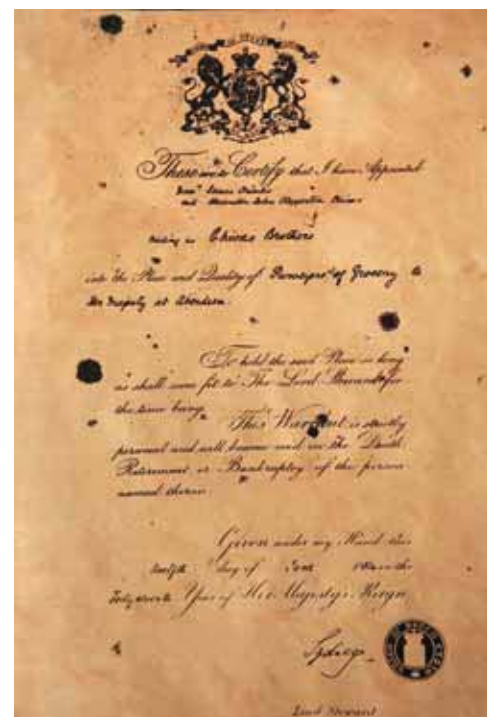 These are to Certify that I have Appointed
James
and Alexander John
trading as Chivas Brothers
into the Place and Quality of Purveyors of Grocery to
Her Majesty at Aberdeen
To hold the said Place as long
as shall seem fit to The Lord Steward for
the time being.
This Warrant is strictly
personal and will become void on the Death
Retirement or Bankruptcy of the person
named therein
Given under my Hand this
twelfth day of in the
Year of Her Majesty's Reign
Lord Steward